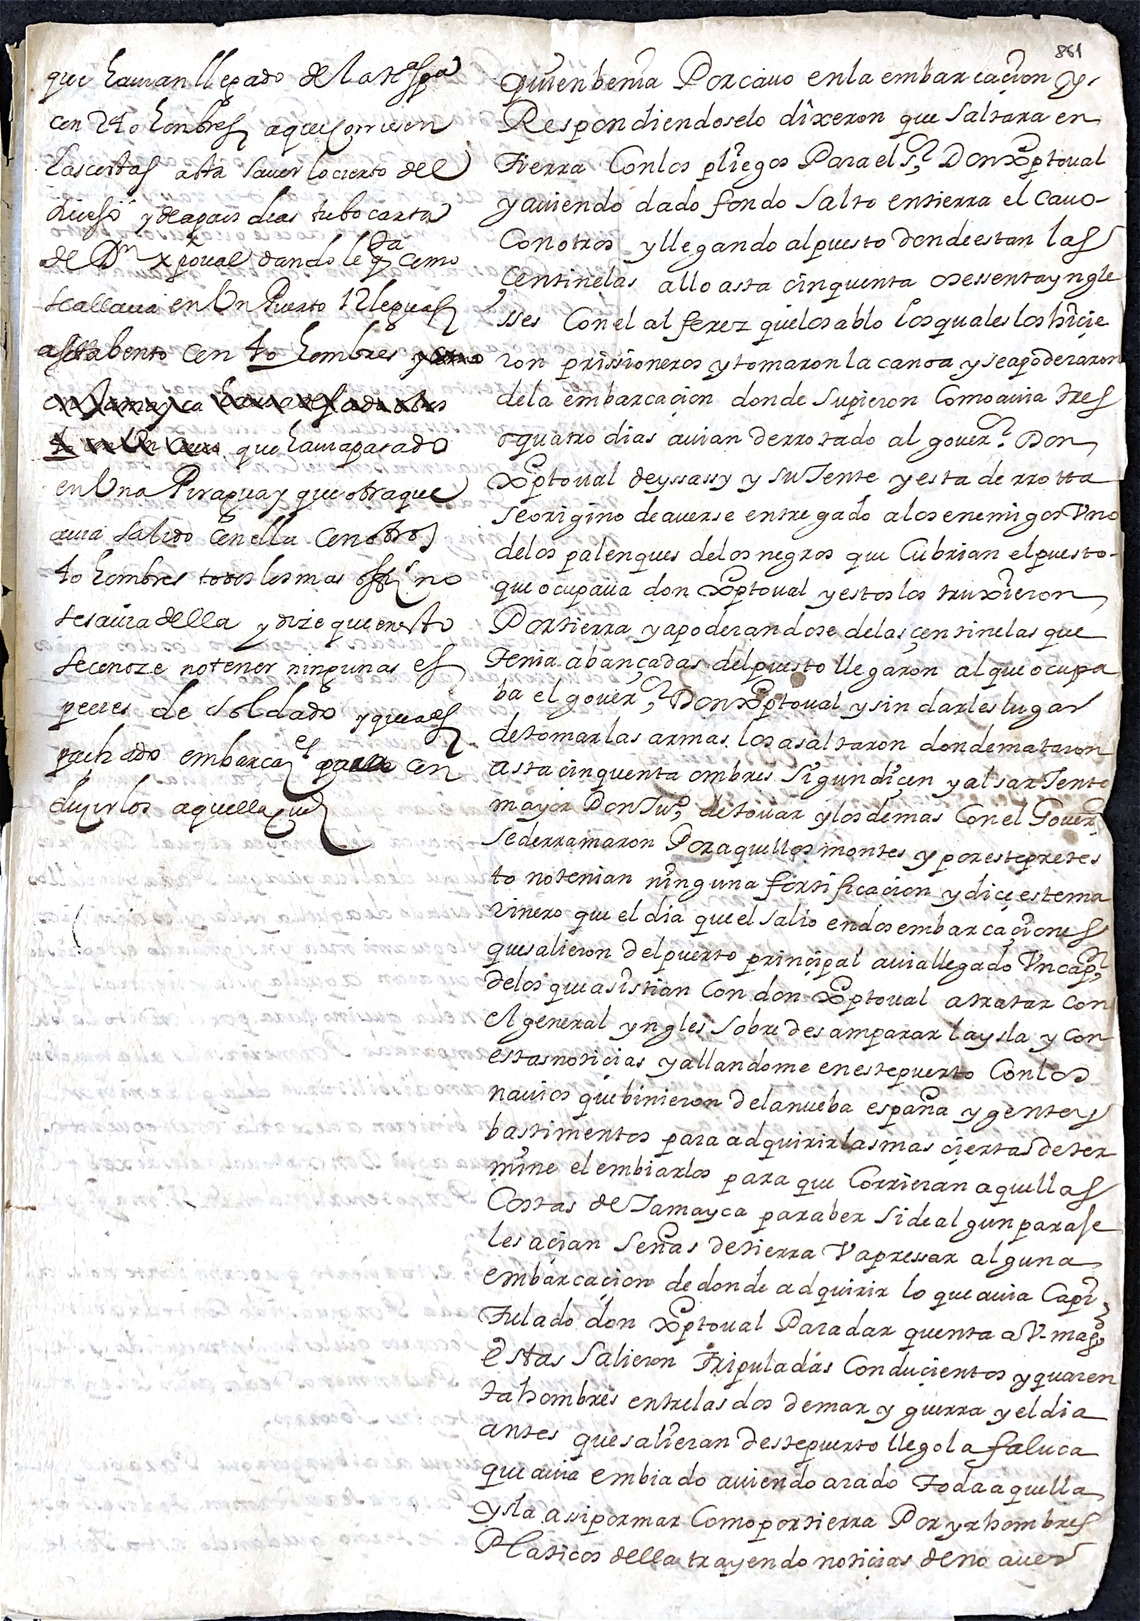 881
que hauian llegado de la nu.ª Spª
con 240 honbres aque corriesen
las costas asta sauer lo cierto del
suceso y despais dias tubo carta
de Dn xpoual dandole qta como
se allaua en Un Puerto 12 leguas
a sotabento con 40 hombres
que hauia pasado
en Una Piragua y que otra que
auia salido con ella con otros
40 hombres todos los mas offes no
se sauia della y dize que en esto
se conoze no tener ningunas es
peçies de Soldado y que a des
pachado embarcaes para con
duçirlos aquella çiud
quien benia Por cauo en la embarcaçion y
Respondiendoselo dixeron que saltara en
tierra Con los pliegos Para el sr Don Xptoual
y auiendo dado fondo salto en tierra el cauo
Con otros y llegando al puesto donde estan las
Çentinelas allo asta çinquenta o sessenta yngle
sses Con el alferez que los ablo los quales los hiçie
ron prissioneros y tomaron la canoa y se apoderaron
de la embarcaçion donde supieron Como auia tres
o quatro dias auian derrotado al gouer.or Don
Xptoual de yssassy y su Jente y esta derrotta
se origino de auerse entregado a los enemigos Uno
de los palenques de los negros que Cubrian el puesto
que ocupaua don Xptoual y estos los truxieron
Por tierra y apoderandose de las çentinelas que
tenia abançadas del puesto llegaron al que ocupa
ba el gouer.or Don Xptoual y sin darles lugar
de tomar las armas los asaltaron donde mataron
asta çinquenta ombres sigun diçen y al sarJento
mayor Don Juº de touar y los demas Con el Gouer.or
se derramaron Por aquellos montes y por este pretes
to no tenian ninguna fortificaçion y diçe este ma
rinero que el dia que el salio en dos embarcaçiones
que salieron del puerto prinçipal auia llegado Un capn
de los que asistian Con don Xptoual a tratar con
el general yngles sobre desamparar la ysla y con
estas notiçias y allandome en este puerto Con los
nauios que binieron de la nueba españa y gente y
bastimentos para adquirir las mas çiertas deter
mine el embiarlos para que Corrieran aquellas
Costas de Jamayca para ber si de algun paraje
les açian Señas de tierra U apressar alguna
embarcaçion de donde adquirir lo que auia Capi
tulado don Xptoual Para dar quenta a V. magd
Estas Salieron tripuladas Con duçientos y quaren
ta hombres entre las dos de mar y guerra y el dia
antes que salieran deste puerto llego la faluca
que auia embiado auiendo arado toda aquella
ysla assi por mar Como por tierra Por yr hombres
Platicos della trayendo notiçias de no auer